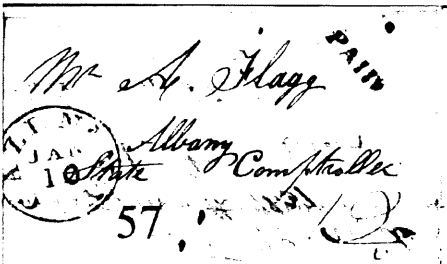 PAID
Mr A. Flagg
Albany
State Comptroller
JAN
10
57